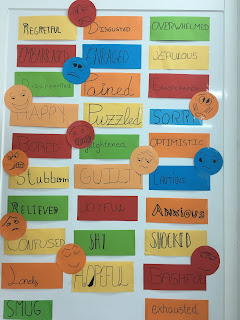 REGRETFUL DISGUSTED OVERWHELMED
EMBARRASSED ENRAGED JEALOUS
Disappointed Pained
HAPPY Puzzled SORRY
BORED frightened OPTIMISTIC
Stubborn GUILTY
RELIEVED JOYFUL Anxious
CONFUSED SHY SHOCKED
Lonely HOPEFUL BASHFUL
SMUG exhausted